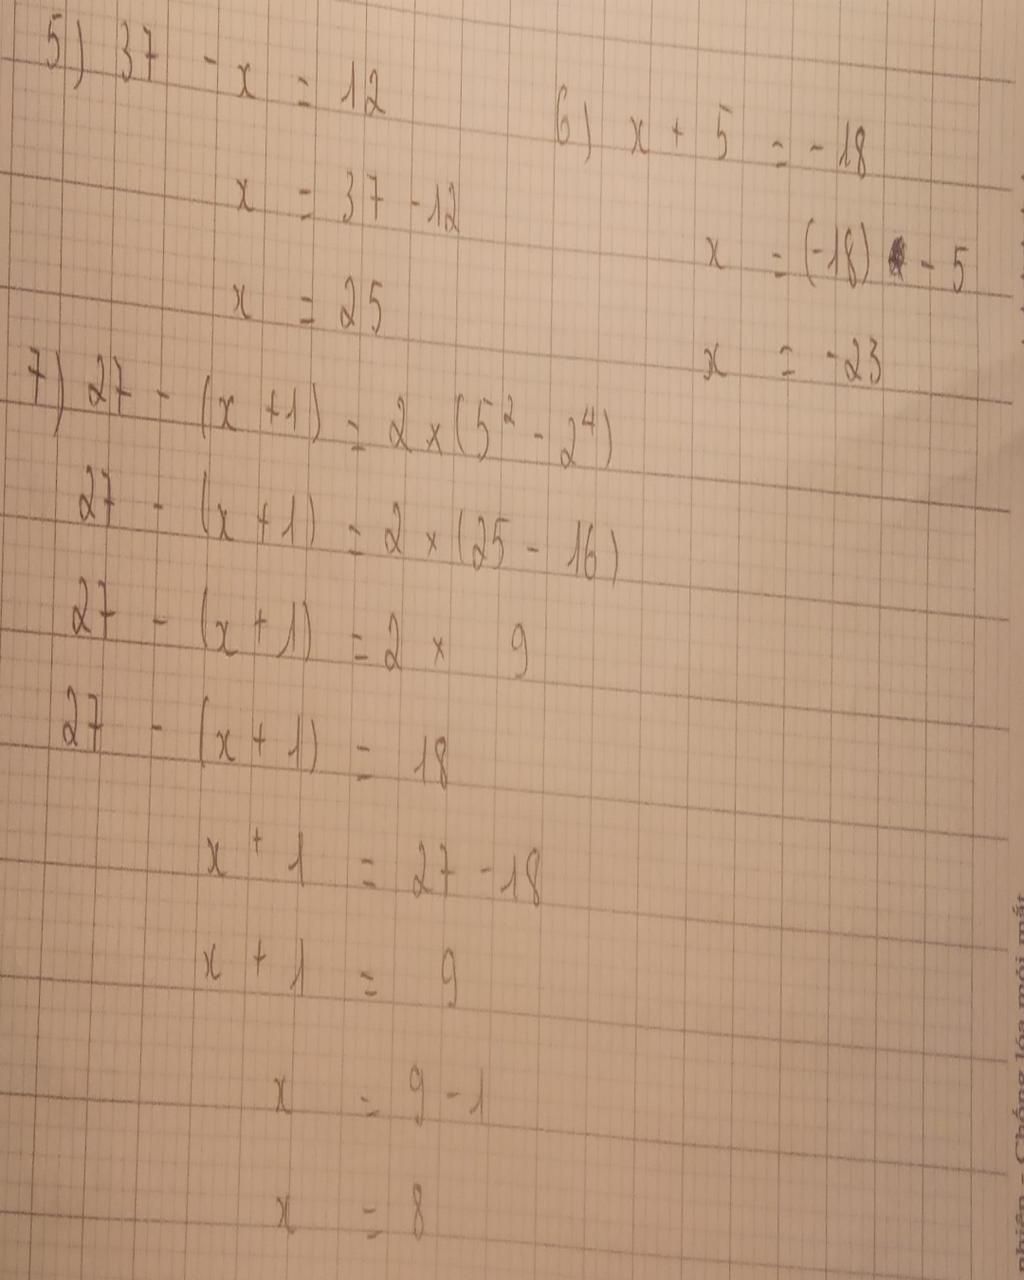 5) 37 - x = 12
x = 37 - 12
x = 25
6) x + 5 = - 18
x = (-18) - 5
x = -23
7) 27 - (x + 1) = 2 × (5² - 2⁴)
27 - (x + 1) = 2 × (25 - 16)
27 - (x + 1) = 2 × 9
27 - (x + 1) = 18
x + 1 = 27 - 18
x + 1 = 9
x = 9 - 1
x = 8
nhiên - Chống lóa mỏi mắt